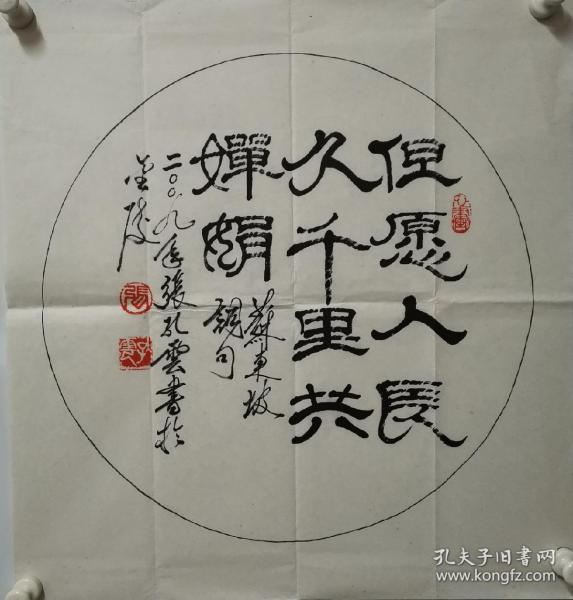 但愿人長
久千里共
嬋娟
蘇東坡
詞句
二〇〇九年張孔雲書於
金陵
張
孔夫子旧书网
www.kongfz.com